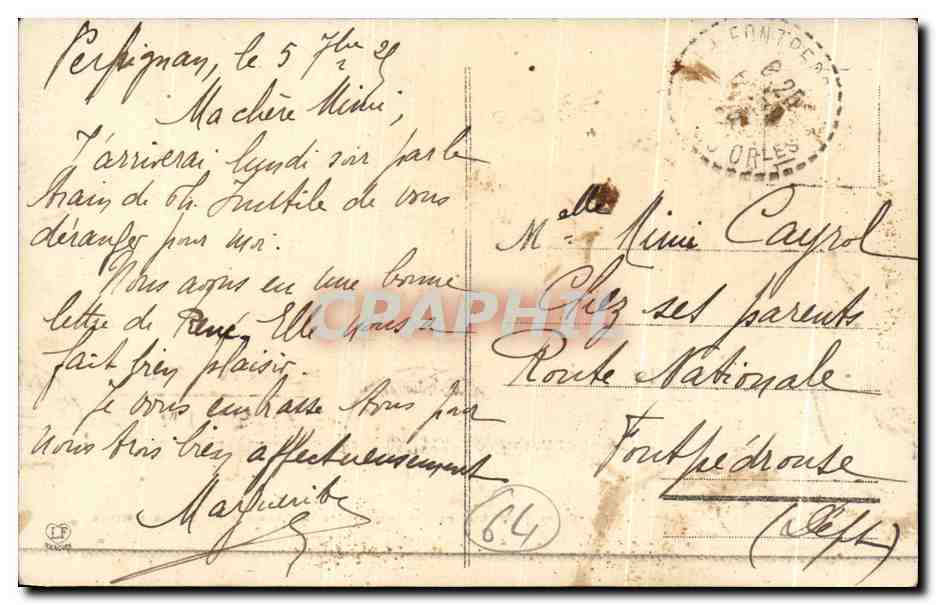 Perpignan, le 5 7bre 25
Ma chère Mimi,
J'arriverai lundi soir par le
train de 6h. Inutile de vous
déranger pour moi.
Nous avons eu une bonne
lettre de René. Elle nous a
fait bien plaisir.
Je vous embrasse tous pour
nous trois bien affectueusement
Marguerite
Melle Mimi Cayrol
Chez ses parents
Route Nationale
Fontpédrouse
(Dept)
64
ORLES
CPARHIL
LF